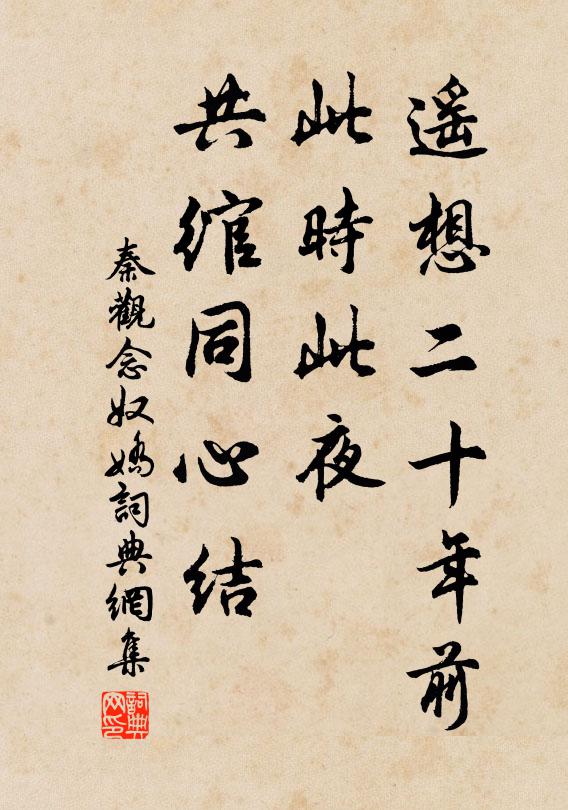 遥想二十年前
此時此夜
共綰同心結
秦觀念奴嬌詞典網集
詞典網印